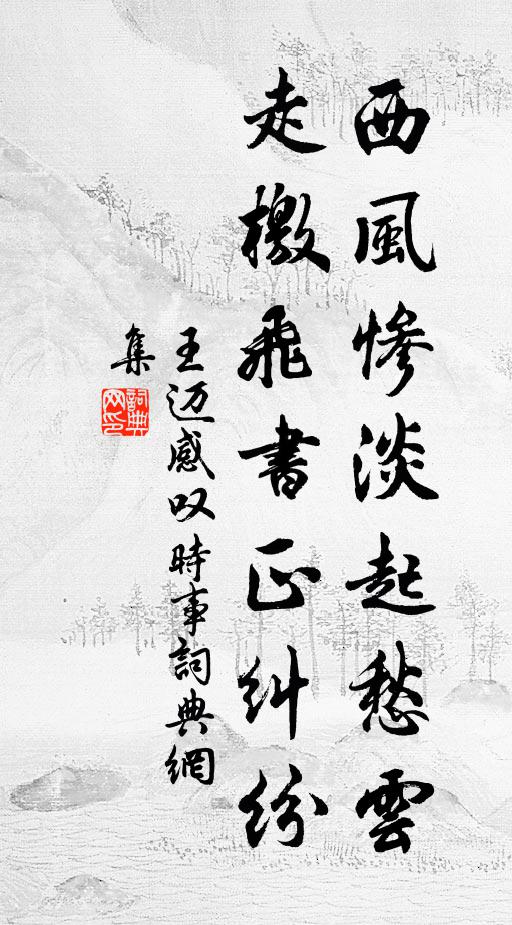 西風慘淡起愁雲
走檄飛書正糾紛
王迈感叹時事詞典網
集
詞典
网印